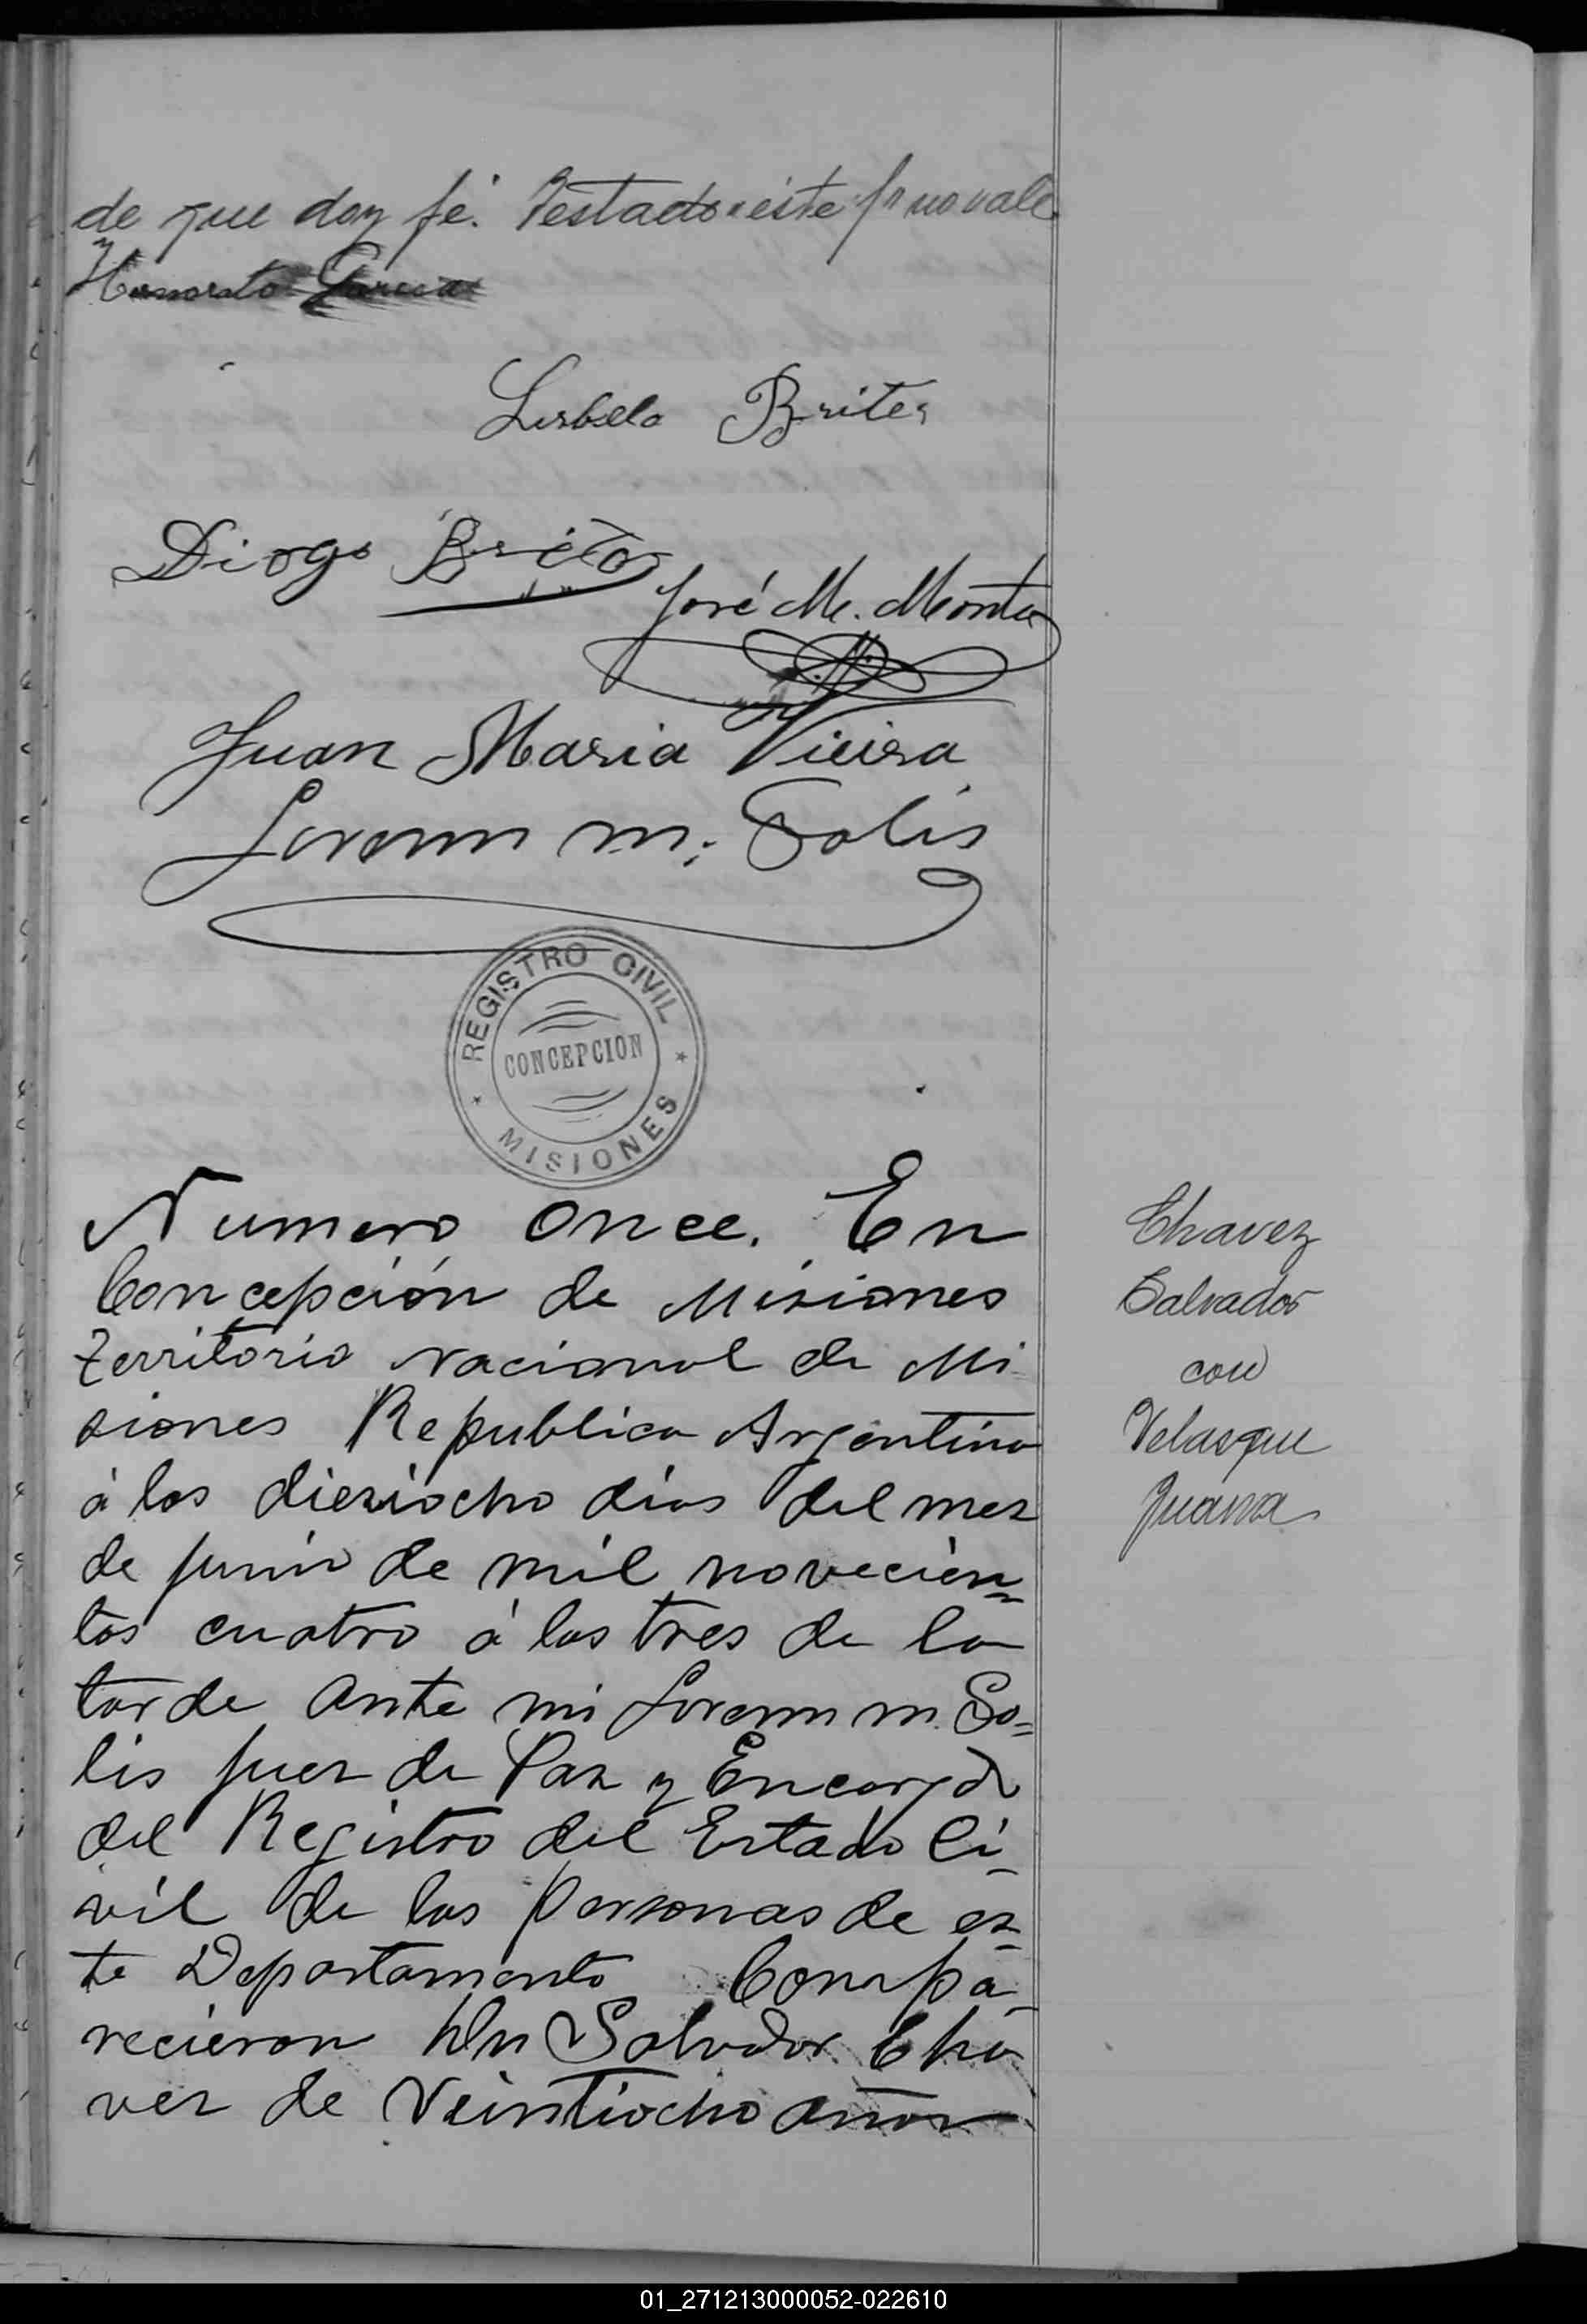 de que doy fé. Testado "éste" no vale
Honorato Garcia
Lisbela Brites
Diogo Brites
José M. Monte
Juan Maria Vieira
Lorenzo M. Solis
REGISTRO CIVIL
CONCEPCION
MISIONES
Numero once. En
Concepción de Misiones
territorio nacional de Mi
siones Republica Argentina
á los dieziocho dias del mez
de junio de mil novecien=
tos cuatro á las tres de la
tarde Ante mi Lorenzo M. So=
lis juez de Paz y Encargdo
del Registro del Estado Ci_
vil de las Personas de es_
te Departamento Compa_
recieron Dn Salvador Cha
vez de veintiocho años
Chavez
Salvador
con
Velasque
Juana
01_271213000052-022610